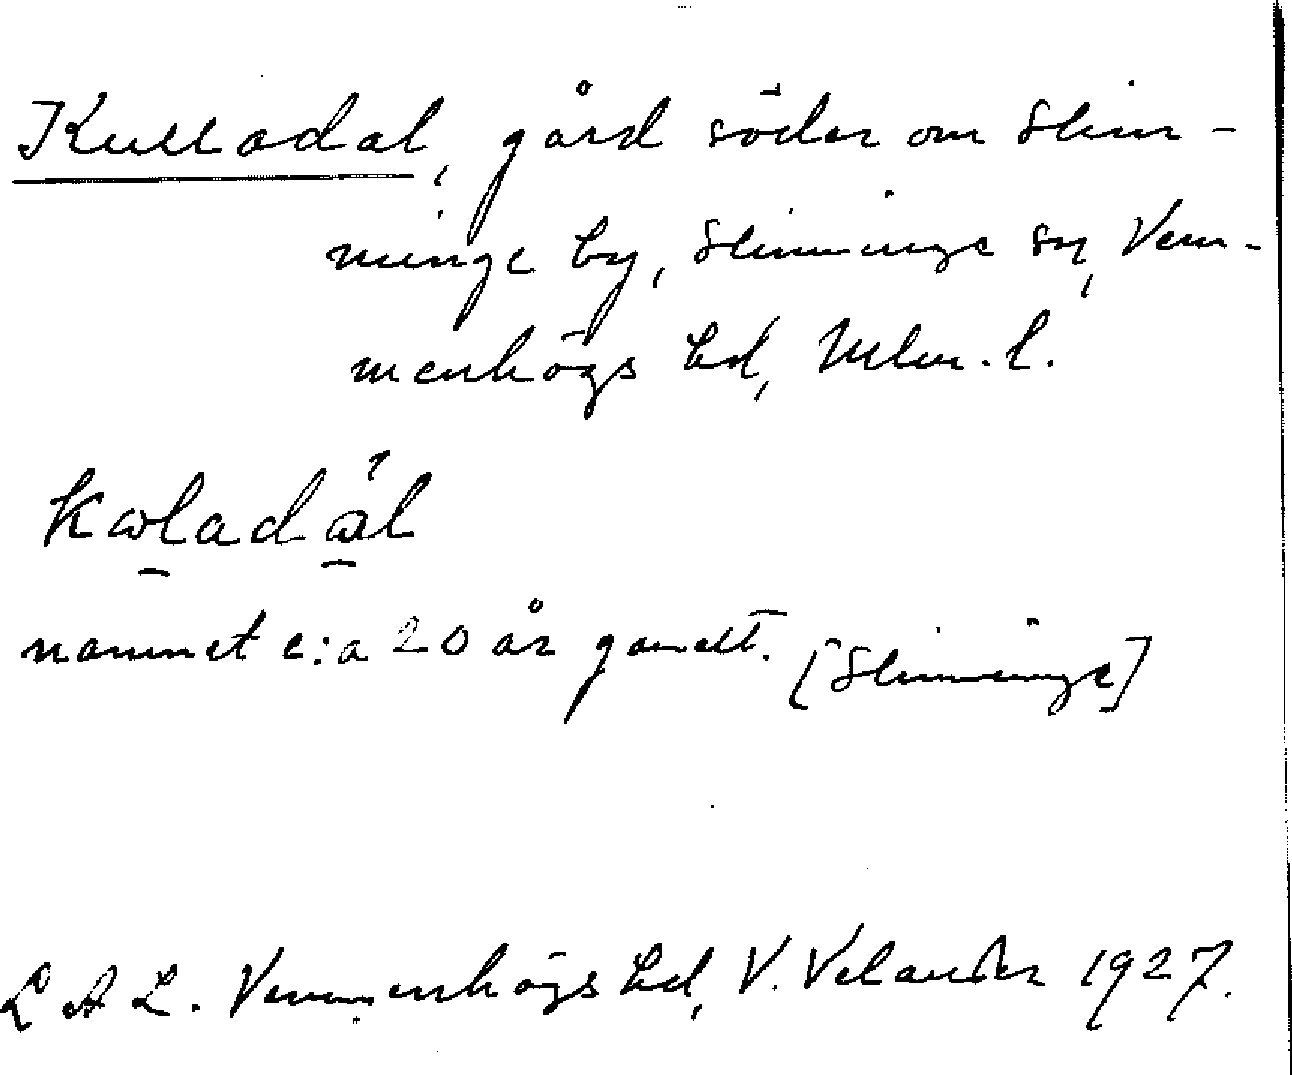 Kulladal, gård söder om Slim-
minge by, Slimminge sn, Vem-
menhögs hd, Mlm. l.
kωladál
namnet c:a 20 år gamalt. [Slimminge]
L A L. Vemmenhögs hd, V. Velander 1927.